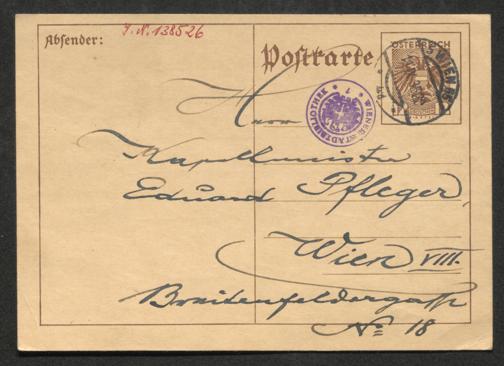 J. N. 138526
Absender:
Postkarte
ÖSTERREICH
WIENER STADTBIBLIOTHEK
Herrn
Kapellmeister
Eduard Pfleger,
Wien VIII.
Breitenfeldergasse
No 18